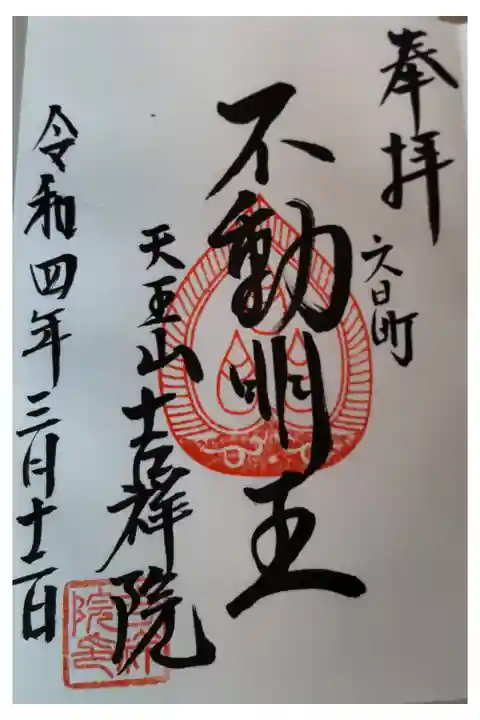 奉拝
六日町
不動明王
天王山吉祥院
令和四年三月十二日